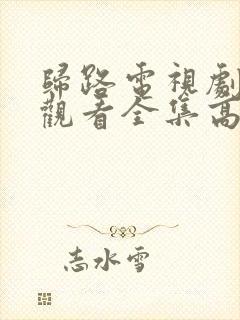 歸路電視劇
觀看全集高
志水雪